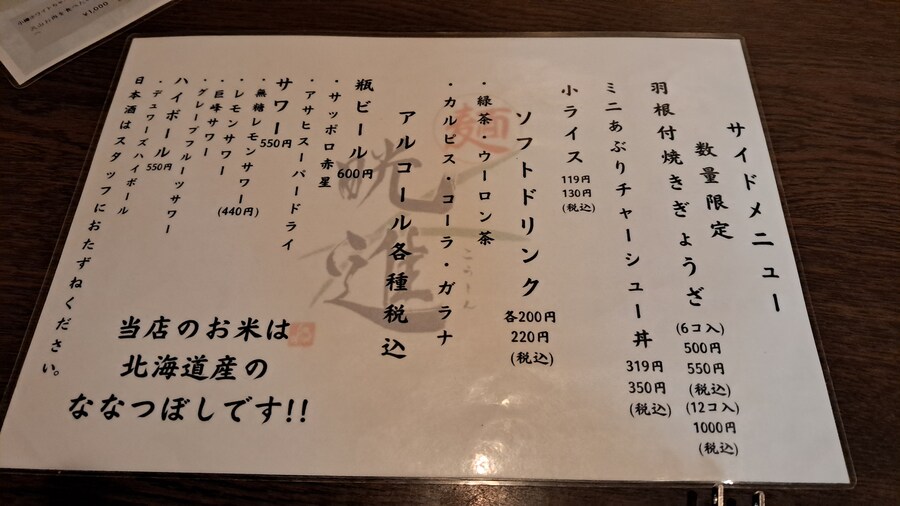 サイドメニュー
数量限定
羽根付焼きぎょうざ
(6コ入)
500円
550円
(税込)
(12コ入)
1000円
(税込)
ミニあぶりチャーシュー丼
319円
350円
(税込)
小ライス
119円
130円
(税込)
ソフトドリンク
各200円
220円
(税込)
・緑茶・ウーロン茶
・カルピス・コーラ・ガラナ
アルコール各種税込
瓶ビール600円
・サッポロ赤星
・アサヒスーパードライ
サワー550円
・無糖レモンサワー(440円)
・レモンサワー
・巨峰サワー
・グレープフルーツサワー
ハイボール550円
・デュワーズハイボール
日本酒はスタッフにおたずねください。
当店のお米は
北海道産の
ななつぼしです!!
麺
晄進
こうしん
¥1,000